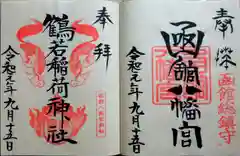 奉拝
鶴若稲荷神社
令和元年九月十五日
奉拝
函館総鎮守
函館八幡宮
令和元年九月十五日